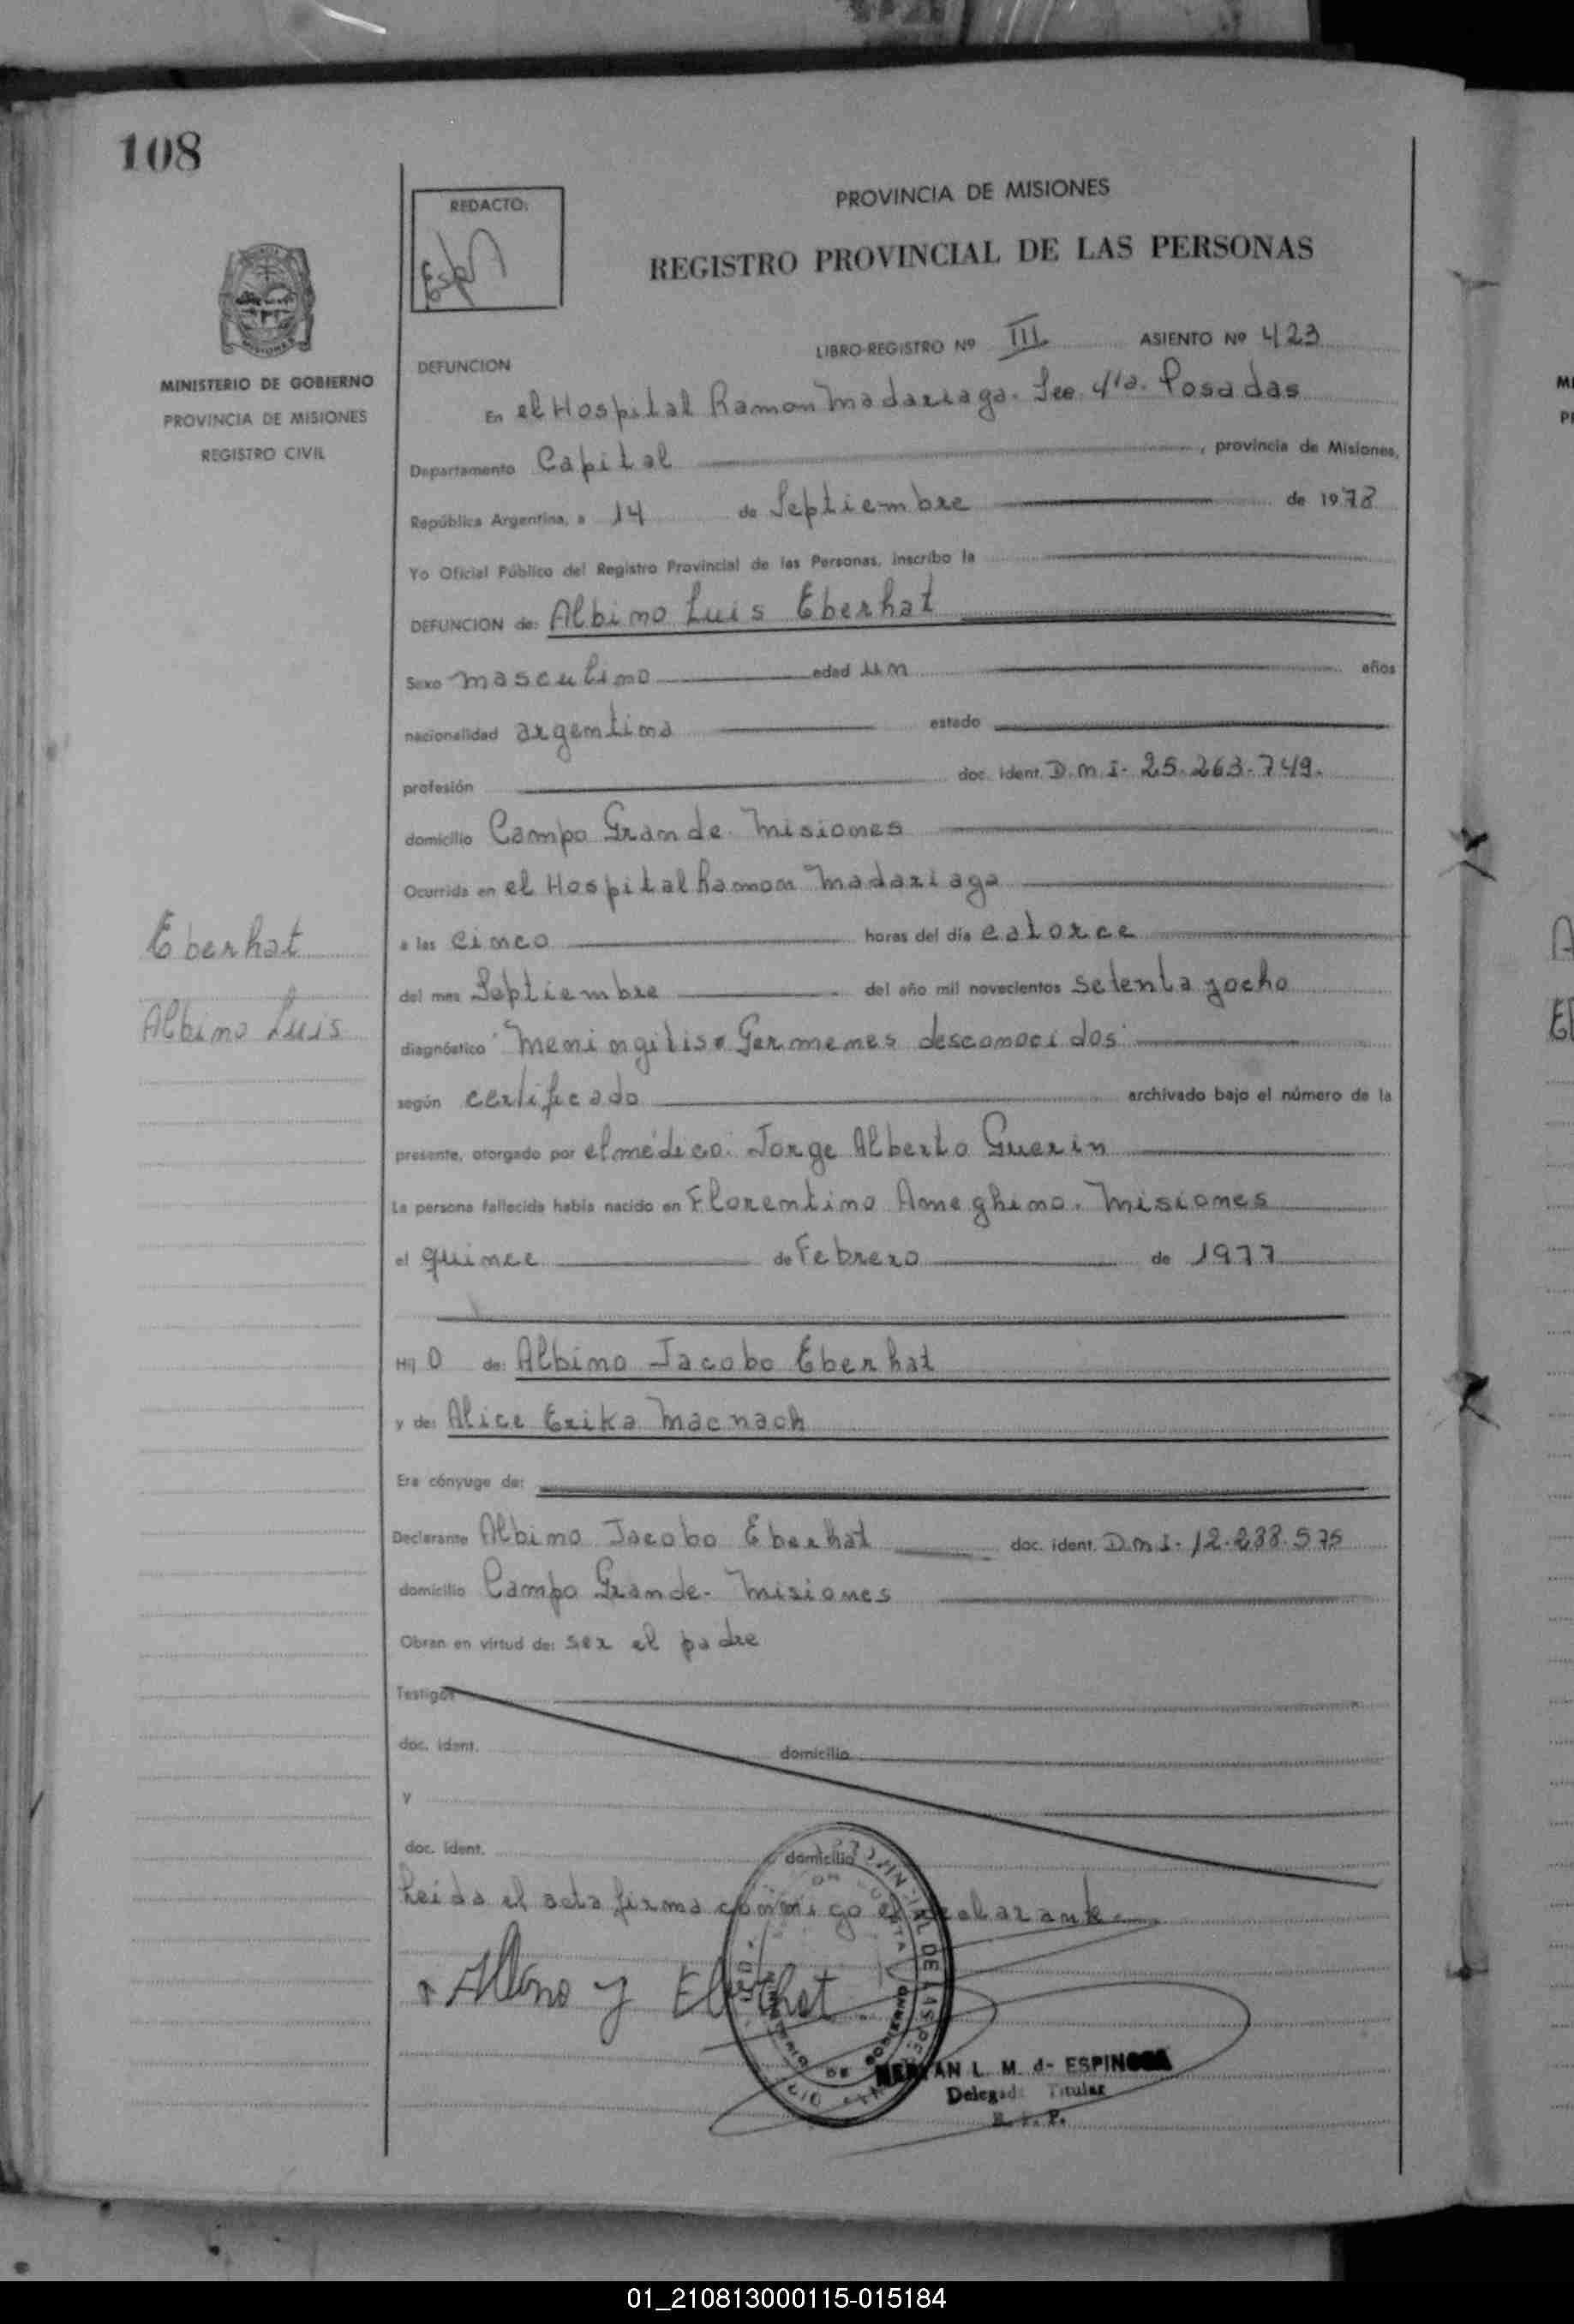 108
REDACTO:
PROVINCIA DE MISIONES
REGISTRO PROVINCIAL DE LAS PERSONAS
MINISTERIO DE GOBIERNO
PROVINCIA DE MISIONES
REGISTRO CIVIL
LIBRO-REGISTRO Nº III ASIENTO Nº 423
DEFUNCION
En el Hospital Ramon Madariaga. Sec. 4ta. Posadas
Departamento Capital, provincia de Misiones,
República Argentina, a 14 de Septiembre de 1978
Yo Oficial Público del Registro Provincial de las Personas, inscribo la
DEFUNCION de: Albino Luis Eberhat
Sexo masculino edad un años
nacionalidad argentina estado
profesión doc. ident. D.n.i. 25.263.749.
domicilio Campo Grande. Misiones
Ocurrida en el Hospital Ramon Madariaga
a las cinco horas del día catorce
del mes Septiembre del año mil novecientos setenta y ocho
diagnóstico "Meningitis a Germenes desconocidos"
según certificado archivado bajo el número de la
presente, otorgado por el médico: Jorge Alberto Guerin
La persona fallecida había nacido en Florentino Ameghino. Misiones
el quince de Febrero de 1977
Hijo de: Albino Jacobo Eberhat
y de: Alice Erika Macnach
Era cónyuge de:
Declarante Albino Jacobo Eberhat doc. ident. D.n.i. 12.238.575
domicilio Campo Grande. Misiones
Obran en virtud de: ser el padre
Testigos
doc. ident. domicilio
y
doc. ident. domicilio
Leida el acta firma conmigo el declarante.
Albino J Eberhat
L. M. d- ESPINOSA
Delegad Titular
R. P.
Eberhat
Albino Luis
01_210813000115-015184